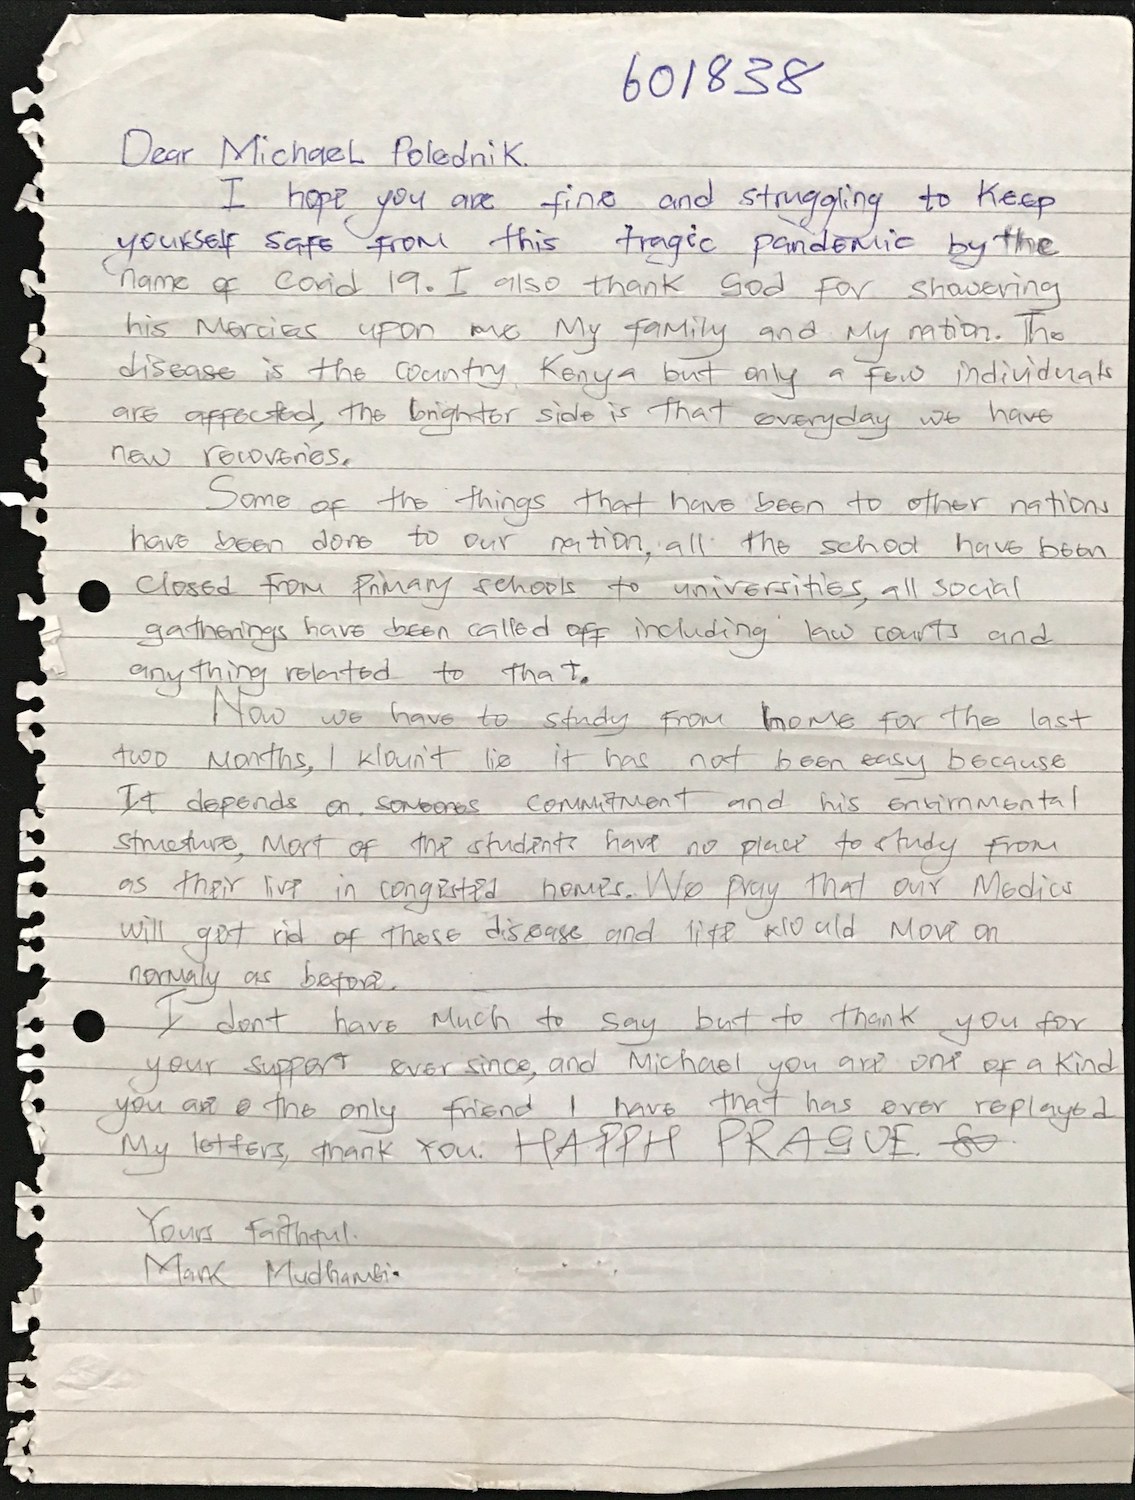 601838
Dear Michael Polednik.
I hope you are fine and struggling to keep
yourself safe from this tragic pandemic by the
name of Covid 19. I also thank God for showering
his Mercies upon me My family and My nation. The
disease is the country, Kenya but only a few individuals
are affected, the brighter side is that everyday we have
new recoveries.
Some of the things that have been to other nations
have been done to our nation, all the school have been
closed from Primary schools to universities, all social
gatherings have been called off including law courts and
anything related to that.
Now we have to study from home for the last
two Months, I won't lie it has not been easy because
It depends on someones commitment and his envirnmental
structure, Most of the students have no place to study from
as their live in congested homes. We pray that our Medics
will get rid of these disease and life would Move on
normaly as before.
I dont have Much to say but to thank you for
your support ever since, and Michael you are one of a kind
you are the only friend I have that has ever replayed
My letters, thank You. HAPPH PRAGUE.
Yours Faithful.
Mark Mudhambi.